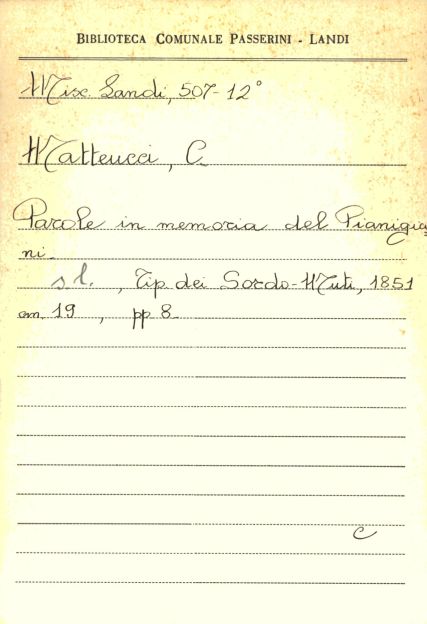 BIBLIOTECA COMUNALE PASSERINI - LANDI
Misc. Landi, 507-12°
Matteucci, C.
Parole in memoria del Pianigia
ni.
s l. , Tip. dei Sordo-Muti, 1851
cm. 19 , pp 8.
C